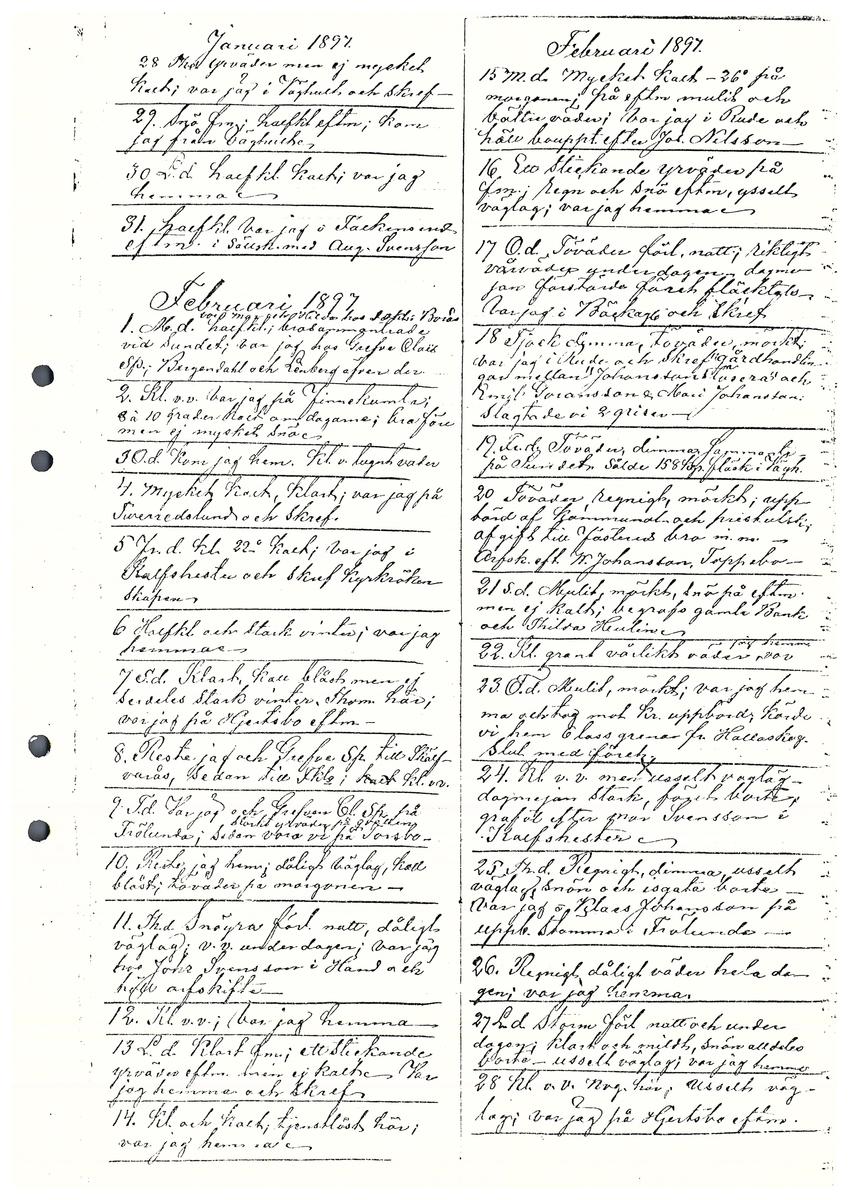 Januari 1897.
28 Thd yrväder men ej mycket
kallt; var jag i Våghult och skref
29. Snö fm; halfkl eftm; kom
jag från Våghult
30 L.d. halfkl kallt; var jag
hemma
31. halfkl. var jag i
eftm. i med Aug. Svensson
Februari 1897
1. M.d. halfkl;
vid Sundet; var jag hos Grefve Claes
Sp.; Bergendahl och Lönberg äfven der
2. Kl. v.v. var jag på Finnekumla;
8 à 10 grader kallt om dagarne; bra före
men ej mycket snö
3 O.d. kom jag hem. Kl. v. lugnt väder
4. Mycket kallt, klart; var jag på
och skref.
5 Fr.d. kl. 22° kallt; var jag i
Kalfshester och skref
6 Halfkl och stark vinter; var jag
hemma
7 S.d. Klart, kall blåst men ej
serdeles stark vinter. Thom. här;
var jag på Hjertsbo eftm.
8. Reste jag och Grefve Sp. till
sedan till kl. v.v.
9. T.d. Var jag och Grefven Cl. Sp. på
Frölunda; sedan voro vi på Torsbo
10. Reste jag hem; dåligt väglag, kall
blåst; töväder på morgonen
11. Thd Snöyra förl. natt, dåligt
väglag; v.v. under dagen; var jag
hos Johs Svensson i och
höll arfskifte
12. Kl. v.v.; var jag hemma
13 L.d. Klart fm; ett stickande
yrväder eftm. men ej kallt Var
jag hemma och skref
14. Kl och kallt; tjenstlöst här;
var jag hemma
Februari 1897.
15 M.d. Mycket kallt – 26° på
morgonen, på eftm mulit och
bättre väder; var jag i Rude och
höll bouppt. efter Joh. Nilsson
16. Ett stickande yrväder på
fm; regn och snö eftm, uselt
väglag; var jag hemma
17 O.d. Töväder förl. natt; riktigt
vårväder under dagen
jan förstörde föret fläcktals
Var jag i Bäckabo och skref
18 Tjock dimma, Töväder, mörkt;
var jag i Rude och skref gårdhandlin
gar mellan Johansson och
Emil Göransson & Mari Johansson:
Slagtade vi 2 grisar
19. Fr.d. Töväder, dimma,
på Sundet. Sålde 158 fläsk i Vågh.
20 Töväder, regnigt, mörkt; upp
börd af kommunal- och
afgift till Fästereds bro m.m.
Arfsk. eft. Johansson, Toppebo
21 S.d. Mulit, mörkt, snö på eftm.
men ej kallt; begrofs gamle
och Thilda
22. Kl. grant vårlikt väder, var
jag hemma
23. T.d. Mulit, mörkt; var jag hem
ma och tog mot kr. uppbörd; körde
vi hem Claes grenar fr. Hallaskog.
Slut med föret
24. Kl. v. v. men uselt väglag
dagmejan stark, föret borta;
graföl efter mor Svensson i
Kalfshester
25. Th.d. Regnigt, dimma, uselt
väglag, snön och isgata borta
Var jag o. Klaes Johansson på
uppb. stämma i Frölunda
26. Regnigt, dåligt väder hela da
gen; var jag hemma
27 L.d Storm förl natt och under
dagen; klart och mildt, snön alldeles
borta – uselt väglag; var jag hemma
28 Kl. v.v. här; Uselt väg
lag; var jag på Hjertsbo eftm.